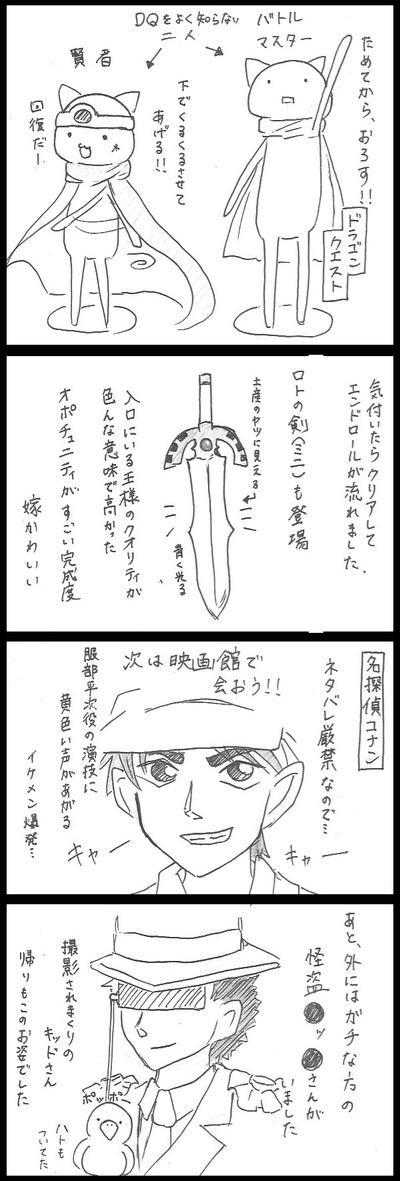 DQをよく知らない
二人
バトル
マスター
賢者
ためてから、おろす!!
ドラゴン
クエスト
下でくるくるさせて
あげる!!
回復だー
気付いたらクリアして
エンドロールが流れました.
ロトの剣(ミニ)も登場
土産のヤツに見える
青く光る
入口にいる王様のクオリティが
色んな意味で高かった
オポチュニティがすごい完成度
嫁かわいい
名探偵コナン
ネタバレ厳禁なので…
次は映画館で
会おう!!
服部平次役の演技に
黄色い声があがる
イケメン爆発…
キャー
キャー
あと、外にはガチな方の
怪盗●ッ●さんが
いました
撮影されまくりの
キッドさん
帰りもこのお姿でした
ポッポ
ハトも
ついてた